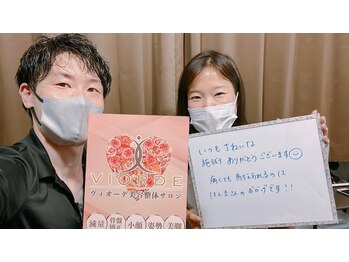 VIORDE
ヴィオーデ美容整体サロン
減量
骨盤矯正
小顔
姿勢
美脚
いつも丁ねいな
施術ありがとうございます
痛くても耐えられるのは
さんのおかげです!!